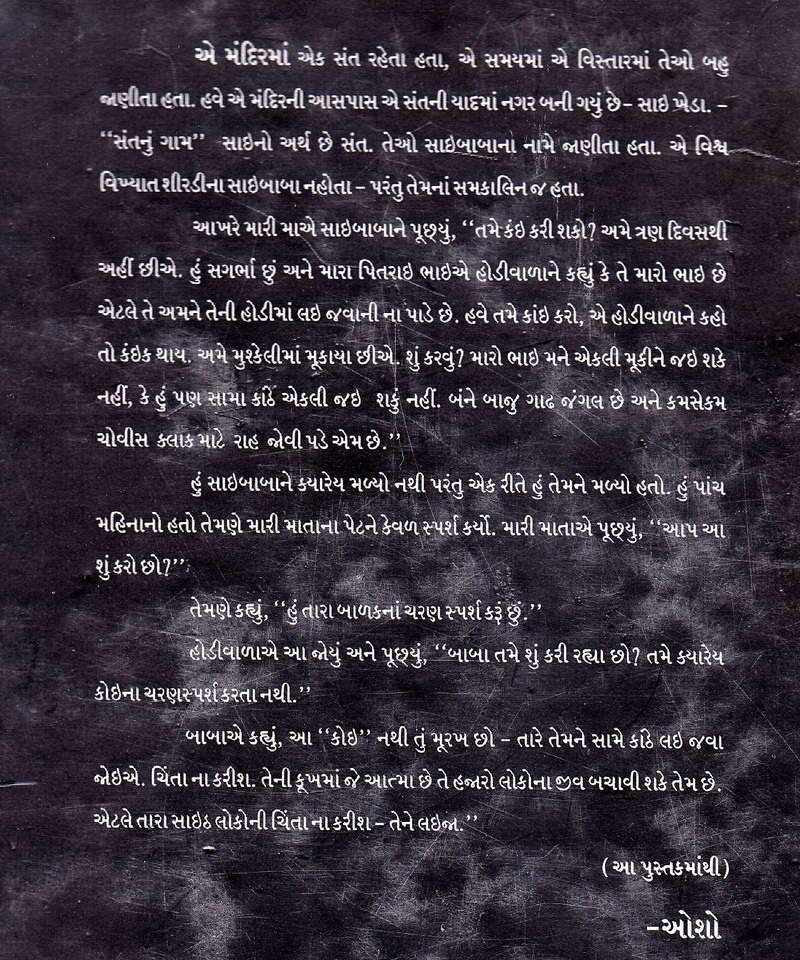 એ મંદિરમાં એક સંત રહેતા હતા, એ સમયમાં એ વિસ્તારમાં તેઓ બહુ
જાણીતા હતા. હવે એ મંદિરની આસપાસ એ સંતની યાદમાં નગર બની ગયું છે– સાઇ ખેડા. –
‘‘સંતનું ગામ’’ સાઇનો અર્થ છે સંત. તેઓ સાઇબાબાના નામે જાણીતા હતા. એ વિશ્વ
વિખ્યાત શીરડીના સાઇબાબા નહોતા – પરંતુ તેમનાં સમકાલિન જ હતા.
આખરે મારી માએ સાઇબાબાને પૂછ્યું, ‘‘તમે કંઇ કરી શકો? અમે ત્રણ દિવસથી
અહીં છીએ. હું સગર્ભા છું અને મારા પિતરાઇ ભાઇએ હોડીવાળાને કહ્યું કે તે મારો ભાઇ છે
એટલે તે અમને તેની હોડીમાં લઇ જવાની ના પાડે છે. હવે તમે કાંઇ કરો, એ હોડીવાળાને કહો
તો કંઇક થાય. અમે મુશ્કેલીમાં મૂકાયા છીએ. શું કરવું? મારો ભાઇ મને એકલી મૂકીને જઇ શકે
નહીં, કે હું પણ સામા કાંઠે એકલી જઇ શકું નહીં. બંને બાજુ ગાઢ જંગલ છે અને કમસેકમ
ચોવીસ કલાક માટે રાહ જોવી પડે એમ છે.’’
હું સાઇબાબાને કયારેય મળ્યો નથી પરંતુ એક રીતે હું તેમને મળ્યો હતો. હું પાંચ
મહિનાનો હતો તેમણે મારી માતાના પેટને કેવળ સ્પર્શ કર્યો. મારી માતાએ પૂછ્યું, ‘‘આપ આ
શું કરો છો?’’
તેમણે કહ્યું, ‘‘હું તારા બાળકનાં ચરણ સ્પર્શ કરૂં છું.’’
હોડીવાળાએ આ જોયું અને પૂછ્યું, ‘‘બાબા તમે શું કરી રહ્યા છો? તમે કયારેય
કોઇના ચરણસ્પર્શ કરતા નથી.’’
બાબાએ કહ્યું, આ ‘‘કોઇ’’ નથી તું મૂરખ છો – તારે તેમને સામે કાંઠે લઇ જવા
જોઇએ. ચિંતા ના કરીશ. તેની કૂખમાં જે આત્મા છે તે હજારો લોકોના જીવ બચાવી શકે તેમ છે.
એટલે તારા સાઇઠ લોકોની ચિંતા ના કરીશ – તેને લઇજા.’’
(આ પુસ્તકમાંથી)
–ઓશો